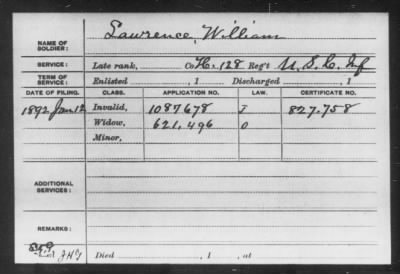 Lawrence, William
NAME OF SOLDIER:
SERVICE: Late rank, Co. H, 128 Reg't U. S. C. Inf
TERM OF SERVICE: Enlisted , 1 Discharged , 1
DATE OF FILING. CLASS. APPLICATION NO. LAW. CERTIFICATE NO.
1892 Jan. 12 Invalid, 1087678 J 827.758
Widow, 621,496 O
Minor,
ADDITIONAL SERVICES:
REMARKS:
Died , 1 , at